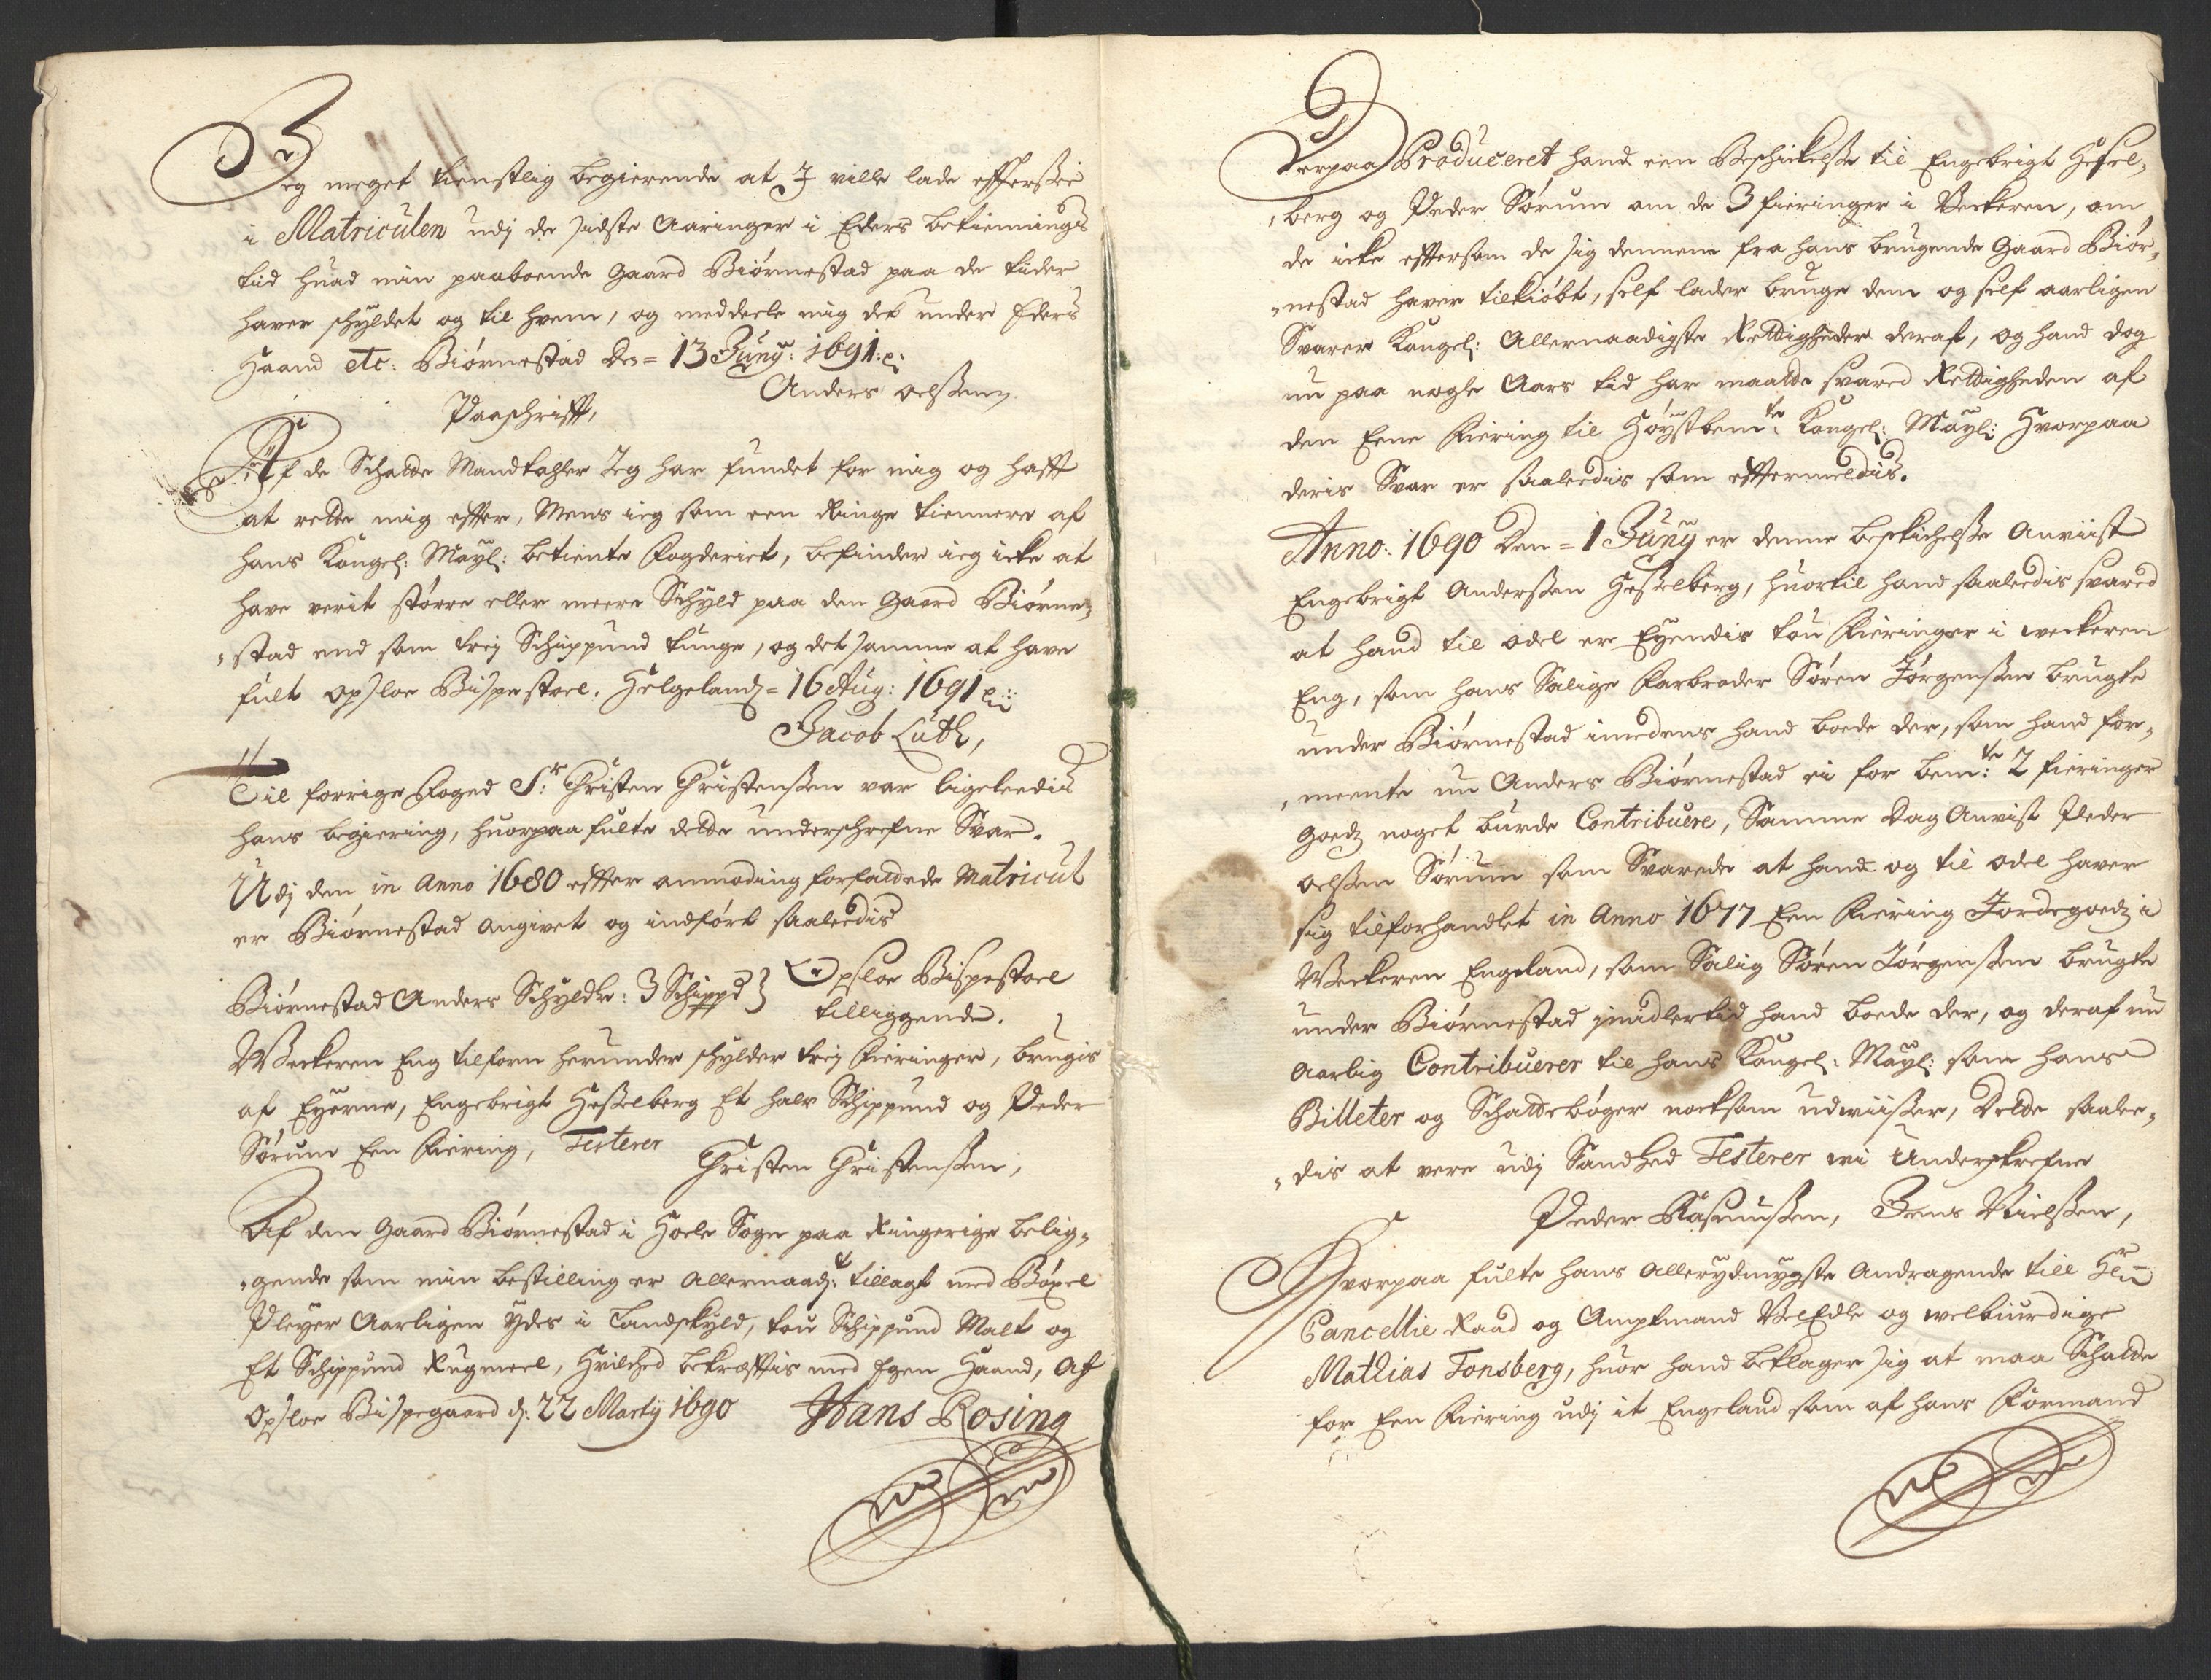 Jeg meget tienstlig begierende at I ville lade effterssee
i Matriculen udj de sidste Aaringer i Eders betiennings
tid huad min paaboende Gaard Biørnestad paa de tider
haver schyldet og til hvem, og meddeele mig det under Eders
Haand etc: Biørnestad den = 13 Junÿ: 1691.
Anders oelssen
Paaschrifft,
Af de Schatte Mandtahler Jeg har fundet for mig og hafft
at rette mig effter, Mens ieg som een Ringe tiennere af
Hans Kongel: Mayl: betiente Fogderiet, befinder ieg icke at
have verit større eller meere Schyld paa den Gaard Biørne,
,stad end som trej Schippund tunge, og det samme at have
fult Opsloe Bispestoel. Helgeland = 16 Aug: 1691
Jacob Luth,
Til forrige Foged Sr: Christen Christenssen var ligeleedis
hans begiering, huorpaa fulte dette underschrefne Svar.
Udj den in Anno 1680 effter anmoding forfattede Matricul
er Biørnestad angivet og indført saaleedis
Biørnestad Anders Schylder: 3 Schippd } Opsloe Bispestoel
tilliggende.
Weckeren Eng tilforn herunder schylder trej Fieringer, brugis
af Eyerne, Engebrigt Hesselberg Et halv Schippund og Peder
Sørum Een Fiering, Testerer
Christen Christenssen,
Af den Gaard Biørnestad i Hoele Sogn paa Ringerige belig,
,gende som min bestilling er Allernaadt: tillagt med Bøxel
Pleyer Aarligen ydes i Landskyld, tou Schippund Malt og
Et Schippund Rugmeel, Hvilched bekræfftis med Egen Haand, Af
Opsloe Bispegaard d: 22 Martÿ 1690 Hans Rosing
Derpaa Produceret hand een Beschickelse til Engebrigt Hessel,
,berg og Peder Sørum om de 3 fieringer i Veckeren, om
de icke effterssom de sig dennem fra hans brugende Gaard Biør,
,nestad haver tilkiøbt, self lader bruge dem og self aarligen
Svarer Kongel: Allernaadigste Rettigheder deraf, og hand dog
nu paa nogle Aars tid har maatte svared Rettigheden af
den Eene Fiering til Høystbemte: Kongel: Mayl: Hvorpaa
deris Svar er saaleedis som efftermeldis.
Anno: 1690 Den = 1 Junÿ er denne beschichelsse Anviist
Engebrigt Anderssen Hesselberg, huortil hand saaleedis svared
at hand til odel er Eyendis tou Fieringer i weckeren
Eng, som hans Salige Farbroder Søren Jørgenssen brugte
under Biørnestad imedens hand boede der, som hand for,
,meente nu Anders Biørnestad ei for bemte: 2 fieringer
goedz noget burde Contribuere, Samme Dag Anvist Peder
oelssen Sørum som Svarede at hand og til odel haver
sig tilforhandlet in Anno 1677 Een Fiering Jordegoedz i
Weckeren Engeland, som Salig Søren Jørgenssen brugte
under Biørnestad imidlertid hand boede der, og deraf nu
Aarlig Contribuerer til hans Kongel: Mayl: som hans
Billeter og Schattebøger nocksom udwiisser, Dette saalee,
,dis at vere udj Sandhed Testerer wi Underskrefne
Peder Rasmussen, Jens Nielssen,
Hvorpaa fulte hans Allerydmygste Andragende till Hr
Cancellie Raad og Amptmand VelEdle og welbiurdige
Mathias Tonsberg, huor hand beklager sig at maa Schatte
for Een Fiering udj it Engeland som af hans Formand